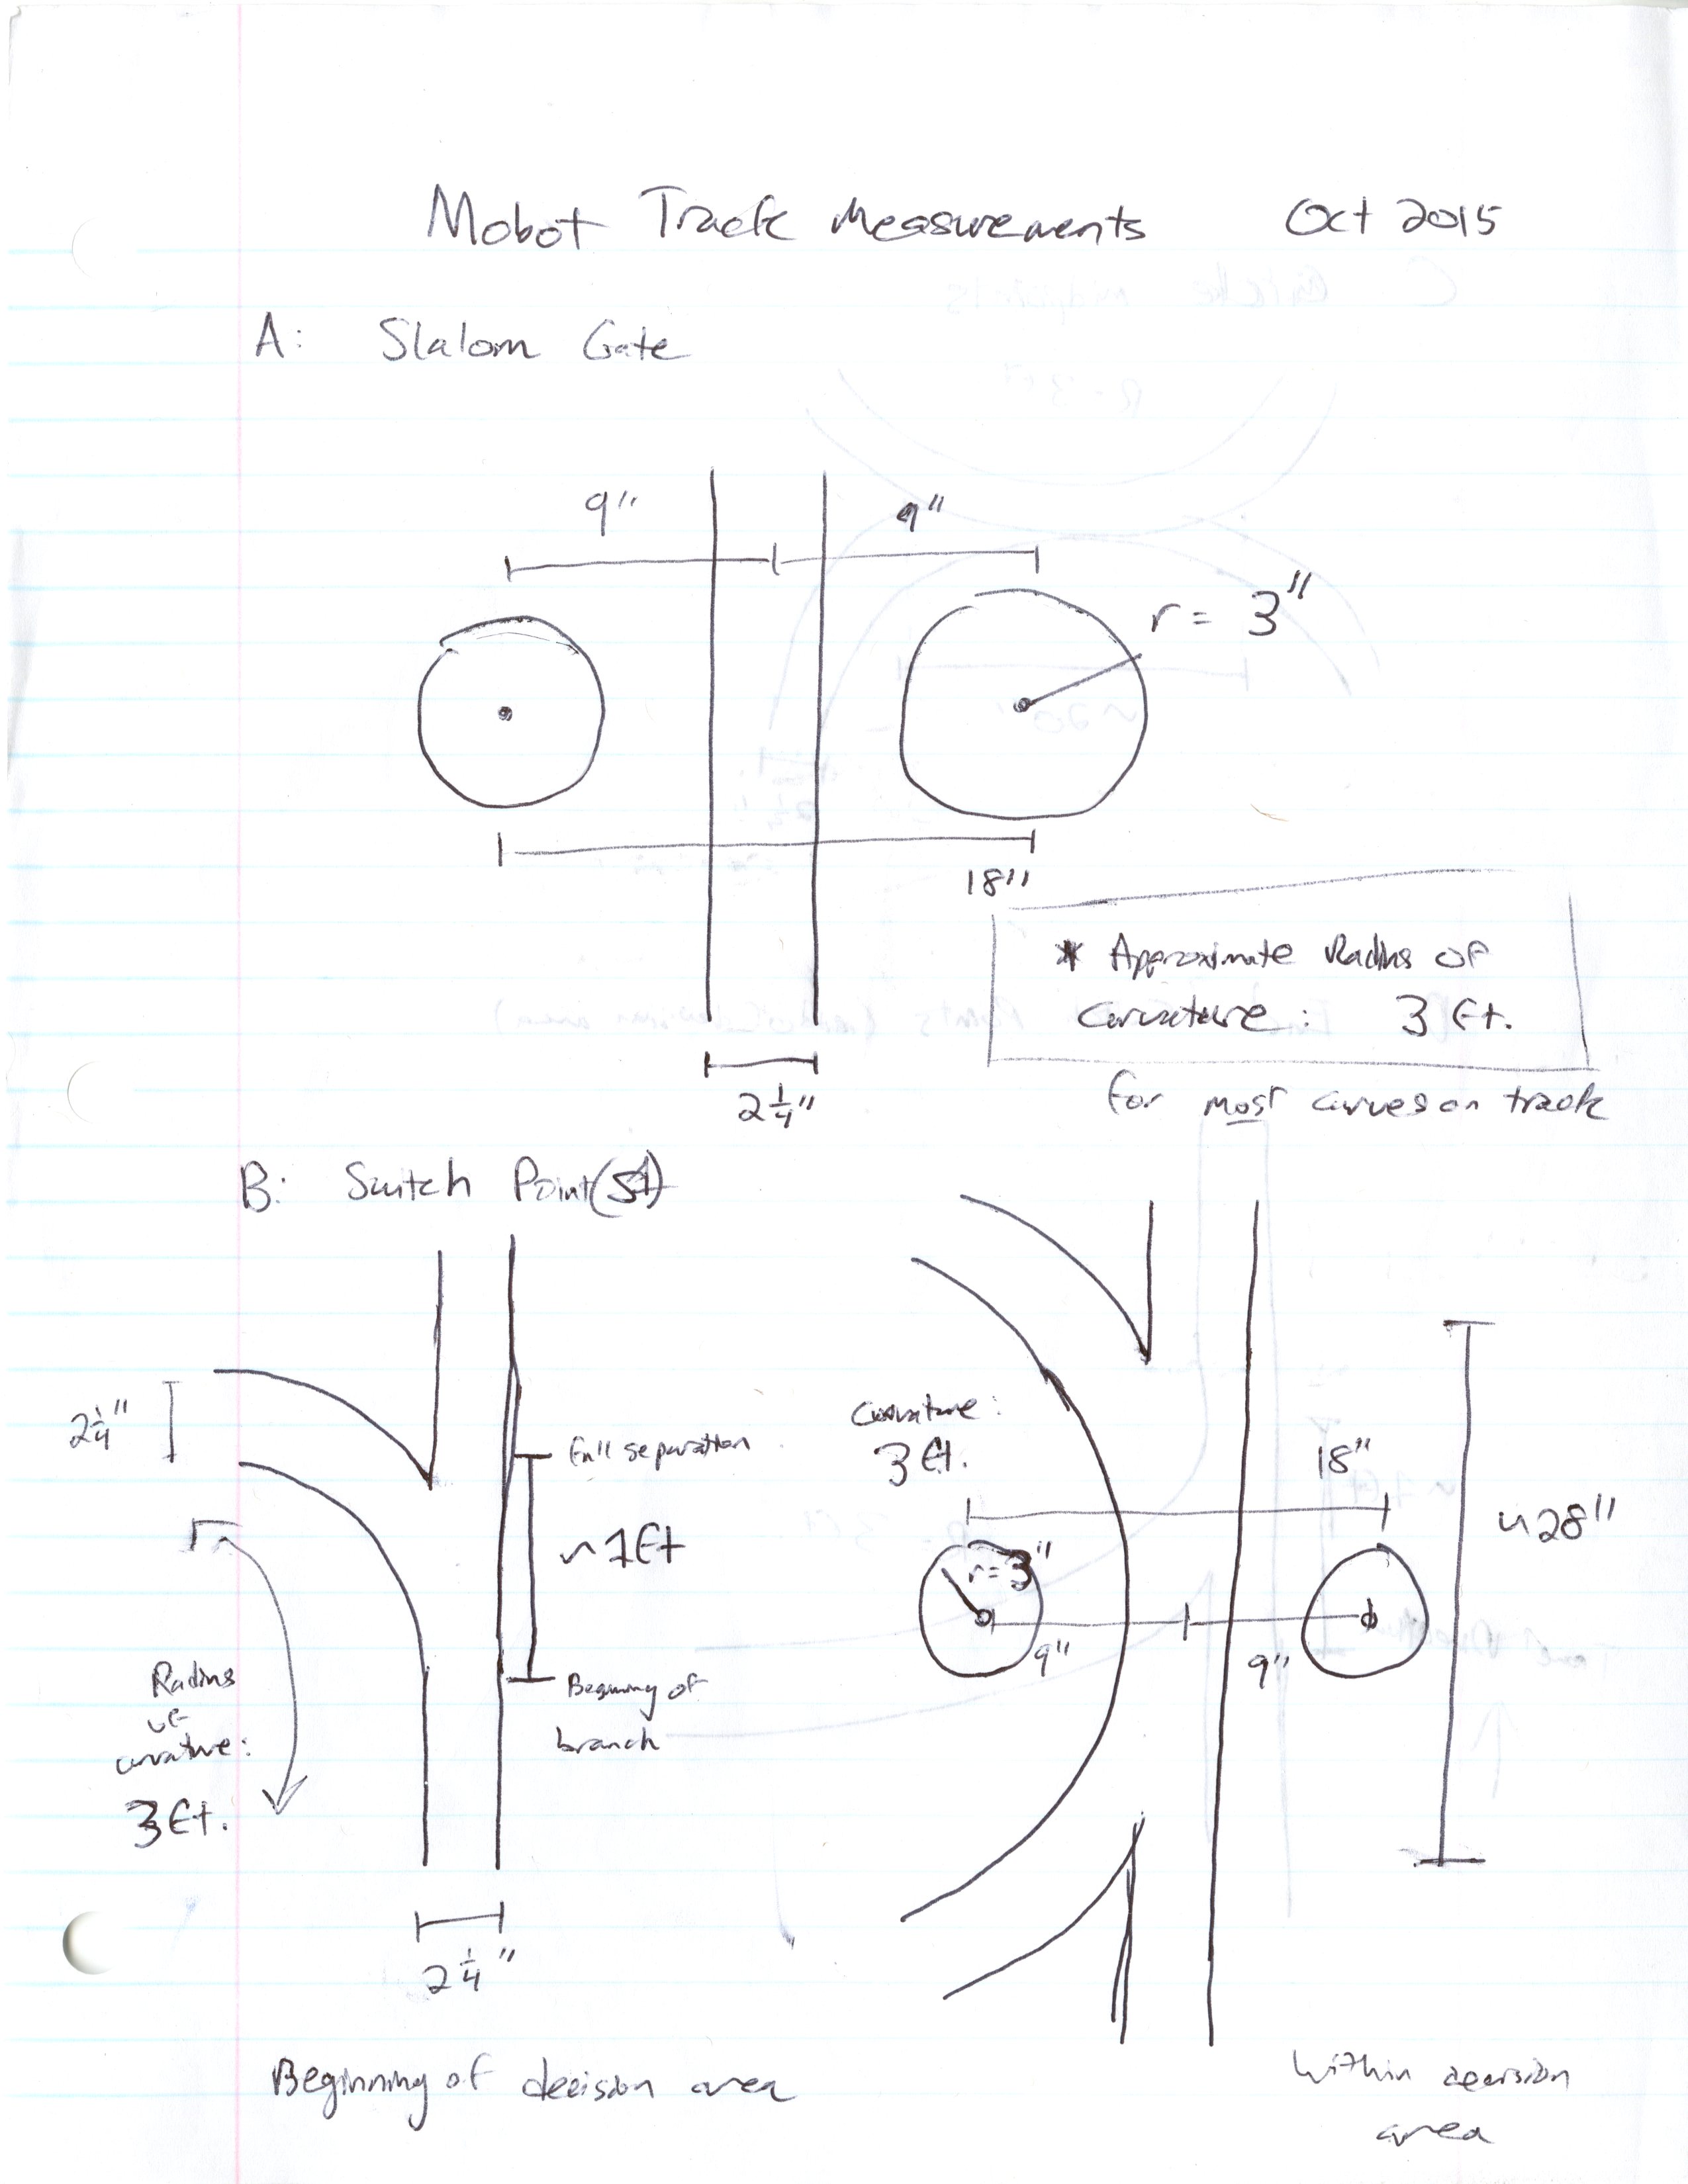 Mobot Track Measurements Oct 2015
A: Slalom Gate
9" 9"
r = 3"
18"
* Approximate Radius of
Curvature: 3 ft.
for most curves on track
2 1/4"
B: Switch Point(s)
2 1/4"
Full separation
~1ft
Beginning of
branch
Radius
of
curvature:
3ft.
2 1/4"
Beginning of decision area
Curvature:
3ft.
18"
~28"
r=3"
9" 9"
Within decision
area